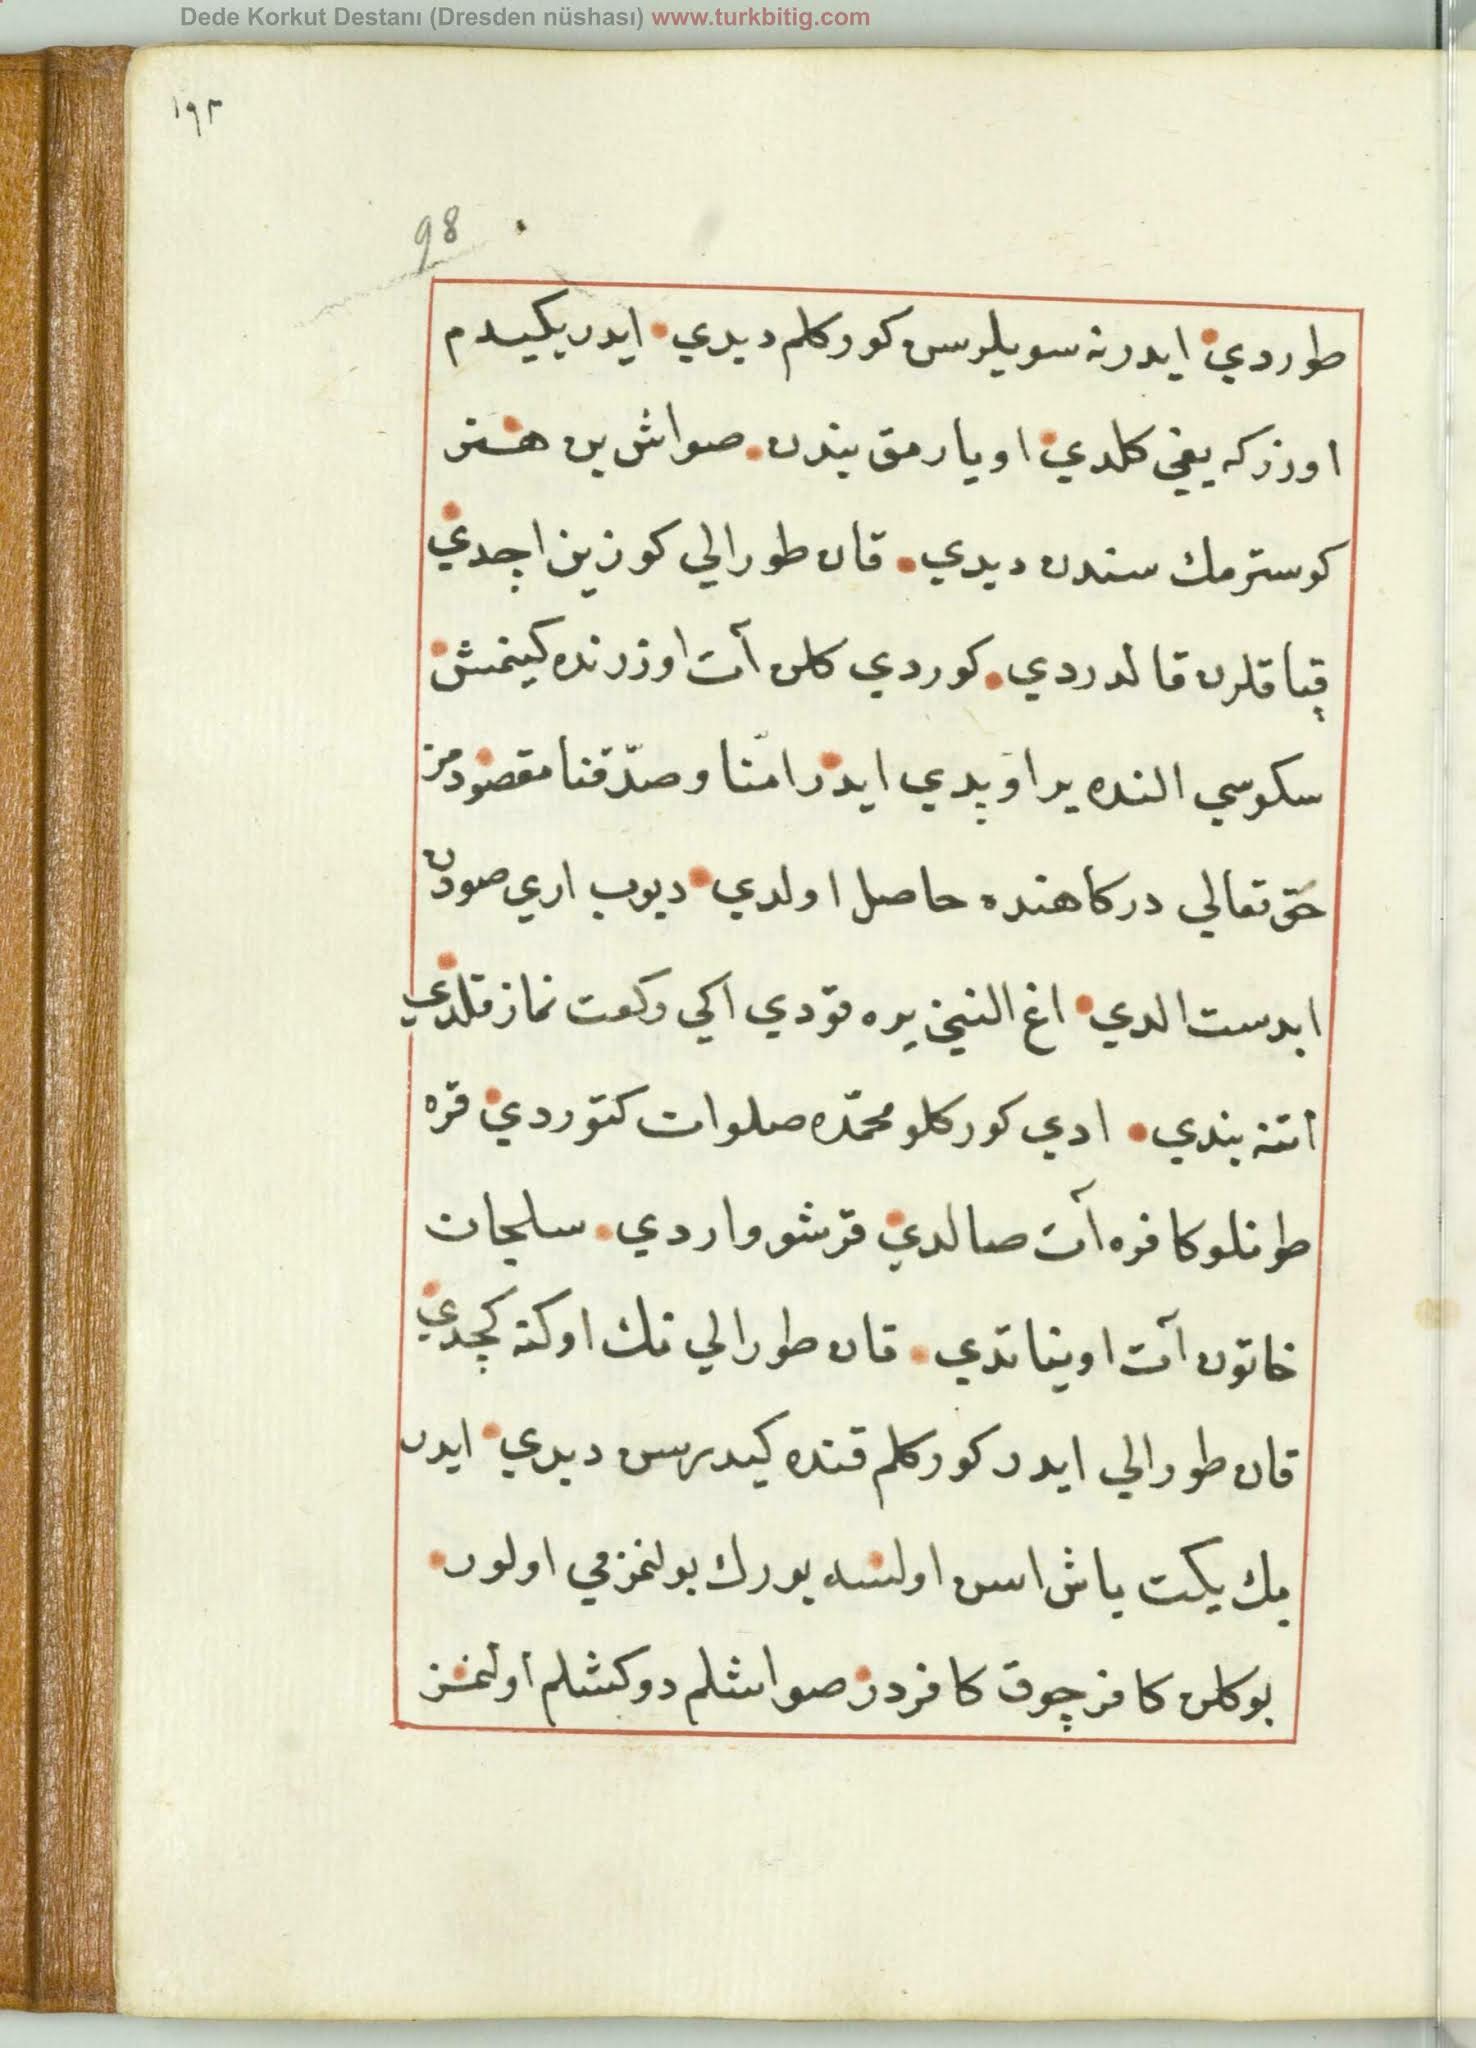 Dede Korkut Destanı (Dresden nüshası) www.turkbitig.com
١٩٣
98
طوردي ایدر نه سویلرسن کورکلم دیدي ایدر یکیدم
اوزرکه یغي کلدي اویارمق بندن صواش بن هنر
کوسترمك سندن دیدي قان طورالي کوزین اچدي
قپاقلرن قالدردي کوردي کلن آت اوزرنده کینمش
سکوسي النده یر اوپدي ایدر امنّا وصدّقنا مقصودمز
حقّ تعالي درکاهنده حاصل اولدي دیوب اري صودن
ابدست الدي اغ النیني یره قودي اکي رکعت نماز قلدي
اتنه بندي ادي کورکلو محمّده صلوات کتوردي قره
طونلو کافره آت صالدي قرشو واردي سلجان
خاتون آت اویناتدي قان طورالي نك اوکنه کچدي
قان طورالي ایدر کورکلم قنده کیدرسن دیدي ایدر
بك یکت باش اسن اولسه بورك بولنمزمي اولور
بو کلن کافر چوق کافردر صواشلم دوکشلم اولنمز